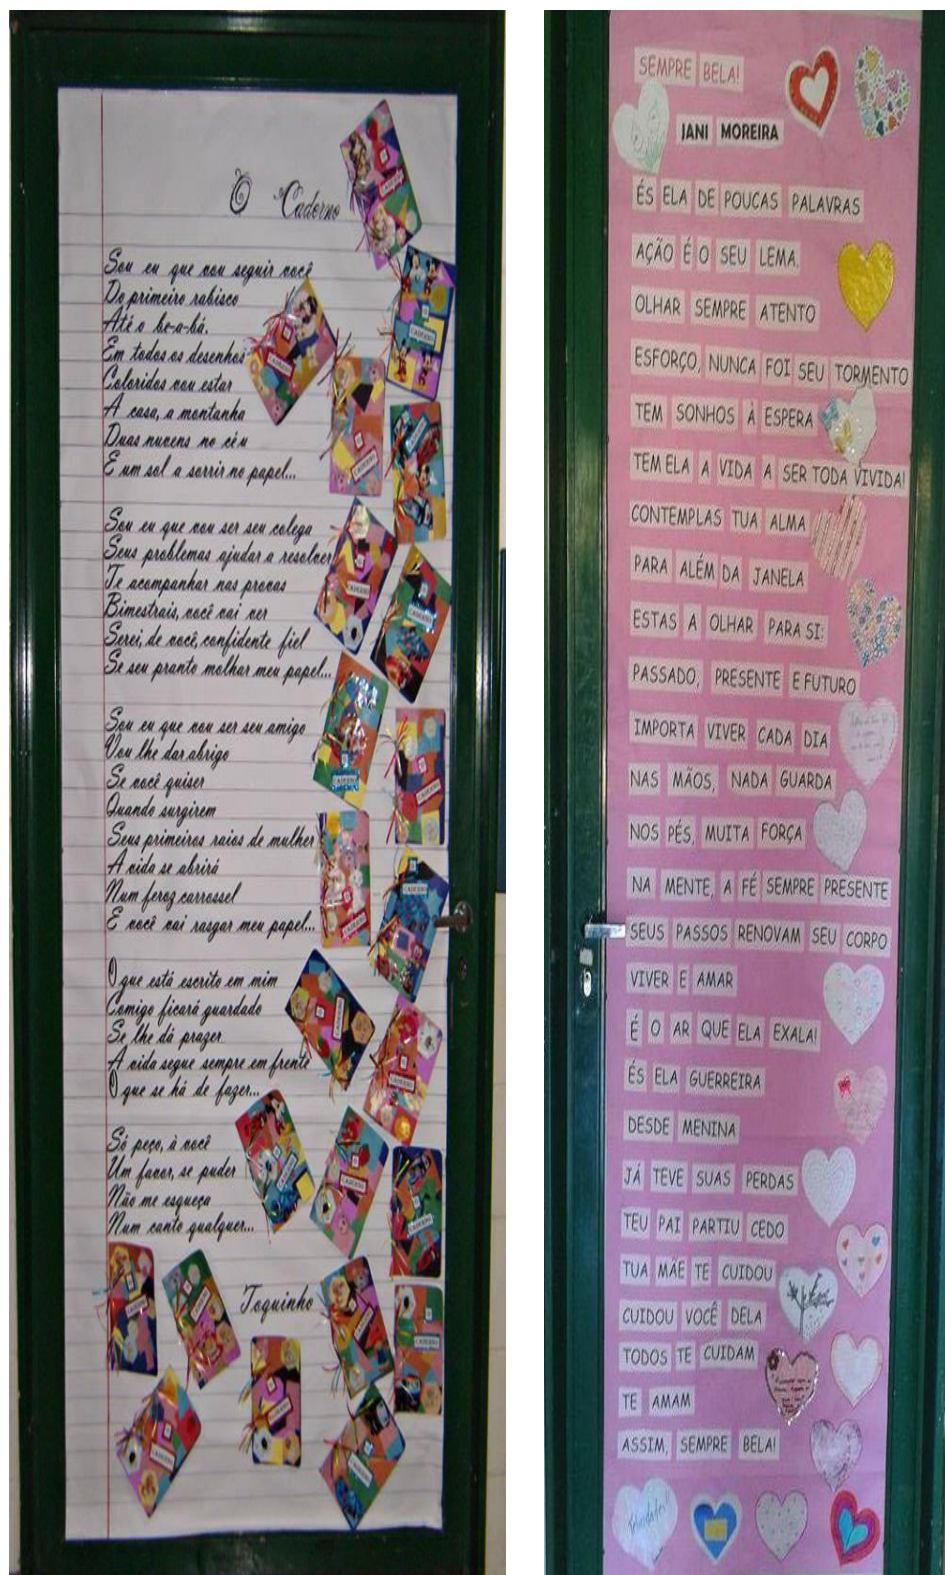 O Caderno
Sou eu que vou seguir você
Do primeiro rabisco
Até o be-a-bá.
Em todos os desenhos
Coloridos vou estar
A casa, a montanha
Duas nuvens no céu
E um sol a sorrir no papel...
Sou eu que vou ser seu colega
Seus problemas ajudar a resolver
Te acompanhar nas provas
Bimestrais, você vai ver
Serei, de você, confidente fiel
Se seu pranto molhar meu papel...
Sou eu que vou ser seu amigo
Vou lhe dar abrigo
Se você quiser
Quando surgirem
Seus primeiros raios de mulher
A vida se abrirá
Num feroz carrossel
E você vai rasgar meu papel...
O que está escrito em mim
Comigo ficará guardado
Se lhe dá prazer
A vida segue sempre em frente
O que se há de fazer...
Só peço, à você
Um favor, se puder
Não me esqueça
Num canto qualquer...
Toquinho
SEMPRE BELA!
JANI MOREIRA
ÉS ELA DE POUCAS PALAVRAS
AÇÃO É O SEU LEMA.
OLHAR SEMPRE ATENTO
ESFORÇO, NUNCA FOI SEU TORMENTO
TEM SONHOS À ESPERA
TEM ELA A VIDA A SER TODA VIVIDA!
CONTEMPLAS TUA ALMA
PARA ALÉM DA JANELA
ESTAS A OLHAR PARA SI:
PASSADO, PRESENTE E FUTURO
IMPORTA VIVER CADA DIA
NAS MÃOS, NADA GUARDA
NOS PÉS, MUITA FORÇA
NA MENTE, A FÉ SEMPRE PRESENTE
SEUS PASSOS RENOVAM SEU CORPO
VIVER E AMAR
É O AR QUE ELA EXALA!
ÉS ELA GUERREIRA
DESDE MENINA
JÁ TEVE SUAS PERDAS
TEU PAI PARTIU CEDO
TUA MÃE TE CUIDOU
CUIDOU VOCÊ DELA
TODOS TE CUIDAM
TE AMAM
ASSIM, SEMPRE BELA!